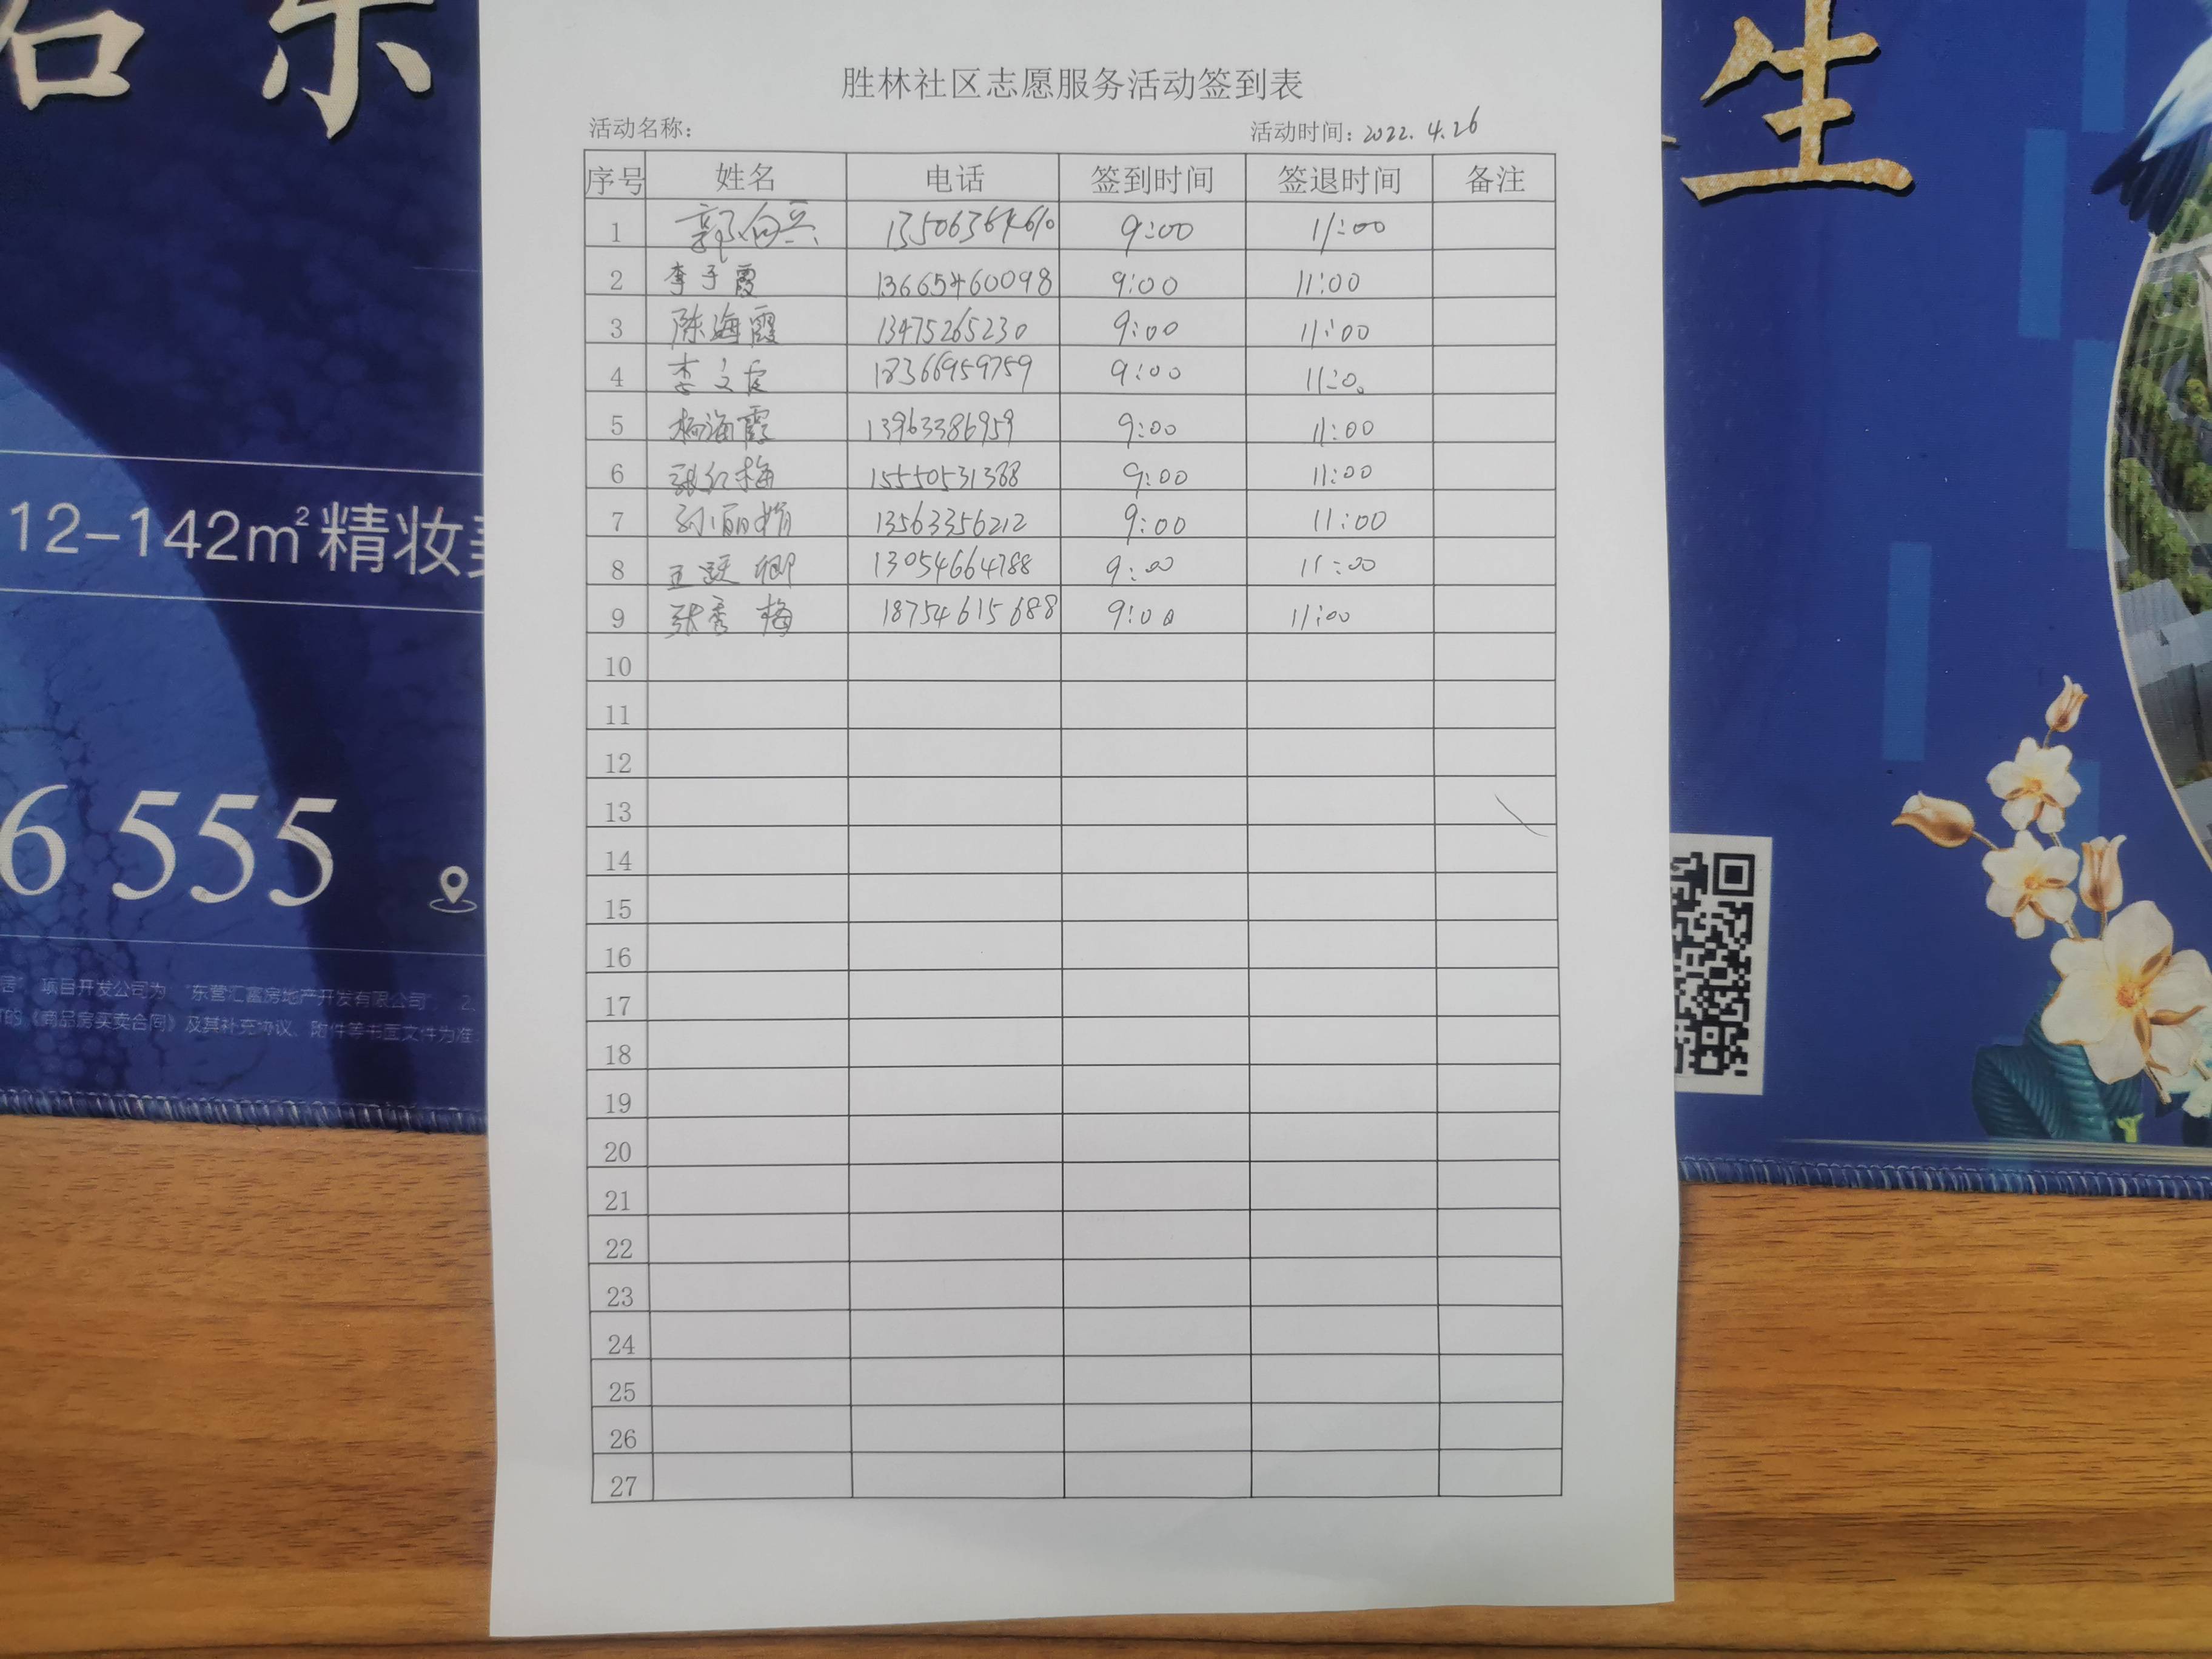 胜林社区志愿服务活动签到表
活动名称： 活动时间：2022.4.26
序号 姓名 电话 签到时间 签退时间 备注
1 9:00 11:00
2 李子霞 13665460098 9:00 11:00
3 陈海霞 13475265230 9:00 11:00
4 李文霞 18366959759 9:00 11:00
5 杨海霞 13963386959 9:00 11:00
6 张红梅 15550531388 9:00 11:00
7 孙丽娟 13563356212 9:00 11:00
8 13054664788 9:00 11:00
9 张秀梅 18754615688 9:00 11:00
10
11
12
13
14
15
16
17
18
19
20
21
22
23
24
25
26
27
12-142m²精妆
6 555
项目开发公司为“东营汇鑫房地产开发有限公司”。2.
的《商品房买卖合同》及其补充协议、附件等书面文件为准
生